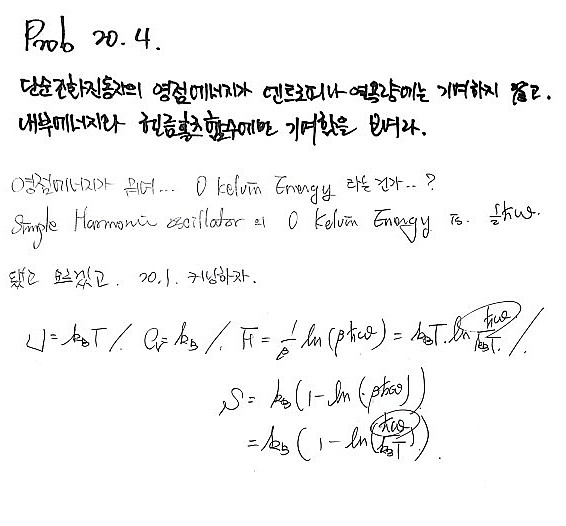 Prob 20.4.
단순조화진동자의 영점에너지가 엔트로피나 열용량에는 기여하지 않고.
내부에너지와 헬름홀츠함수에만 기여함을 보여라.
영점에너지가 뭐여... 0 kelvin Energy 라는건가..?
Simple Harmonic oscillator 의 0 Kelvin Energy is. ½ħω.
됐고 모르겠고. 20.1. 커닝하자.
U = k_BT /. C_V = k_B /. F = 1/β ln(βħω) = k_BT. ln ħω/k_BT. /
S = k_B (1 - ln(βħω))
= k_B (1 - ln(ħω/k_BT)).